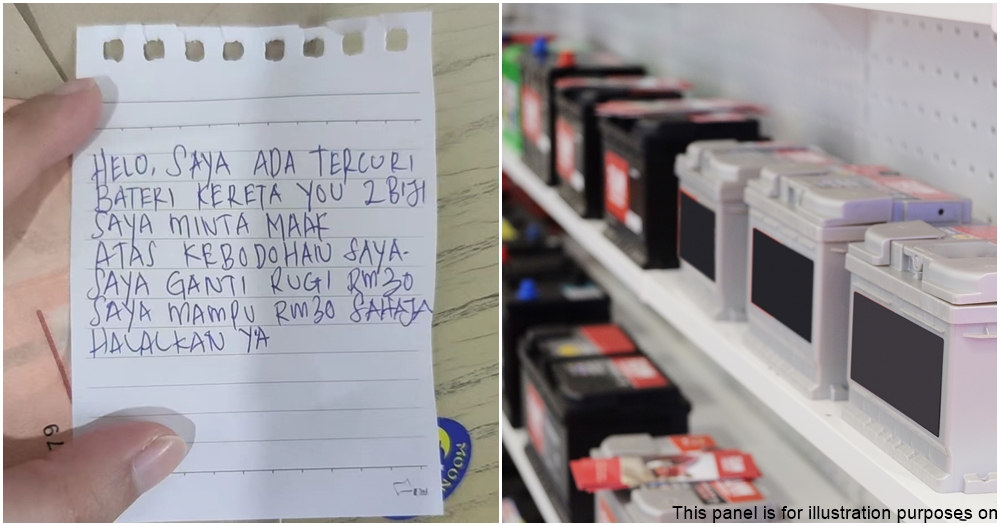 HELO, SAYA ADA TERCURI
BATERI KERETA YOU 2 BIJI
SAYA MINTA MAAF
ATAS KEBODOHAN SAYA.
SAYA GANTI RUGI RM30
SAYA MAMPU RM30 SAHAJA
HALALKAN YA
79
MOON
This panel is for illustration purposes on